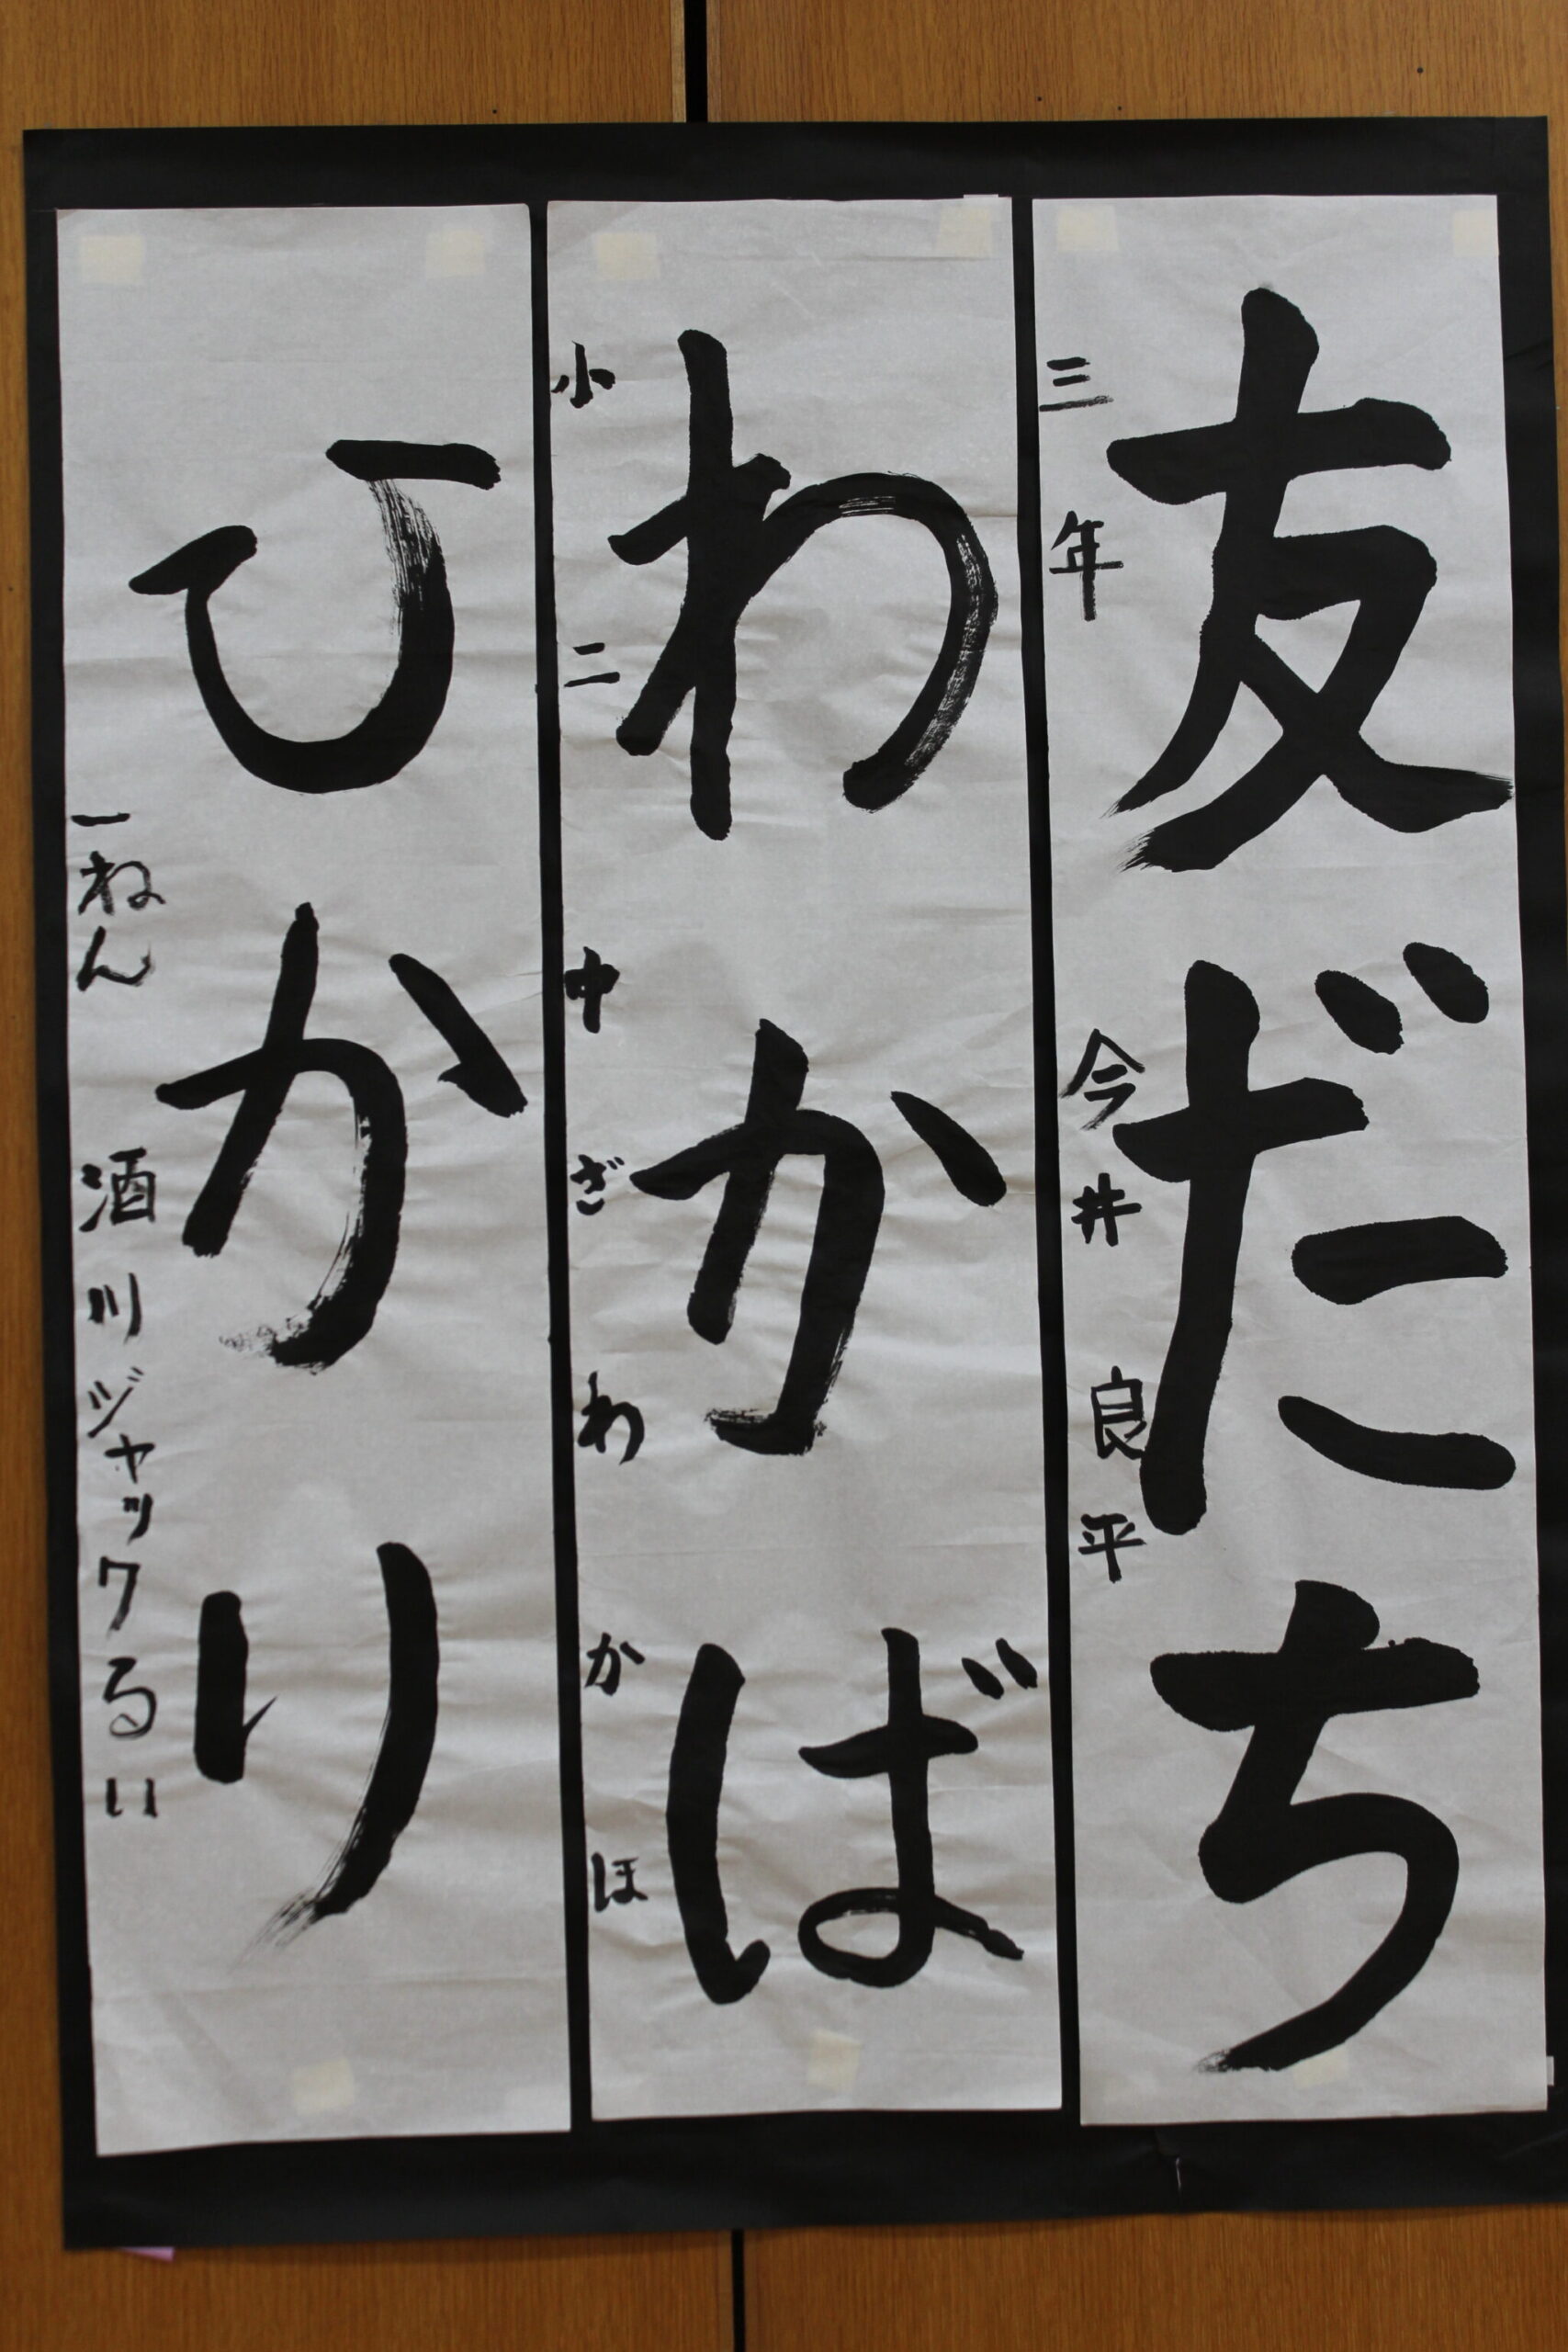 友だち
三年 今井 良平
わかば
小二 中ざわ かほ
ひかり
一ねん 酒川ジャックるい